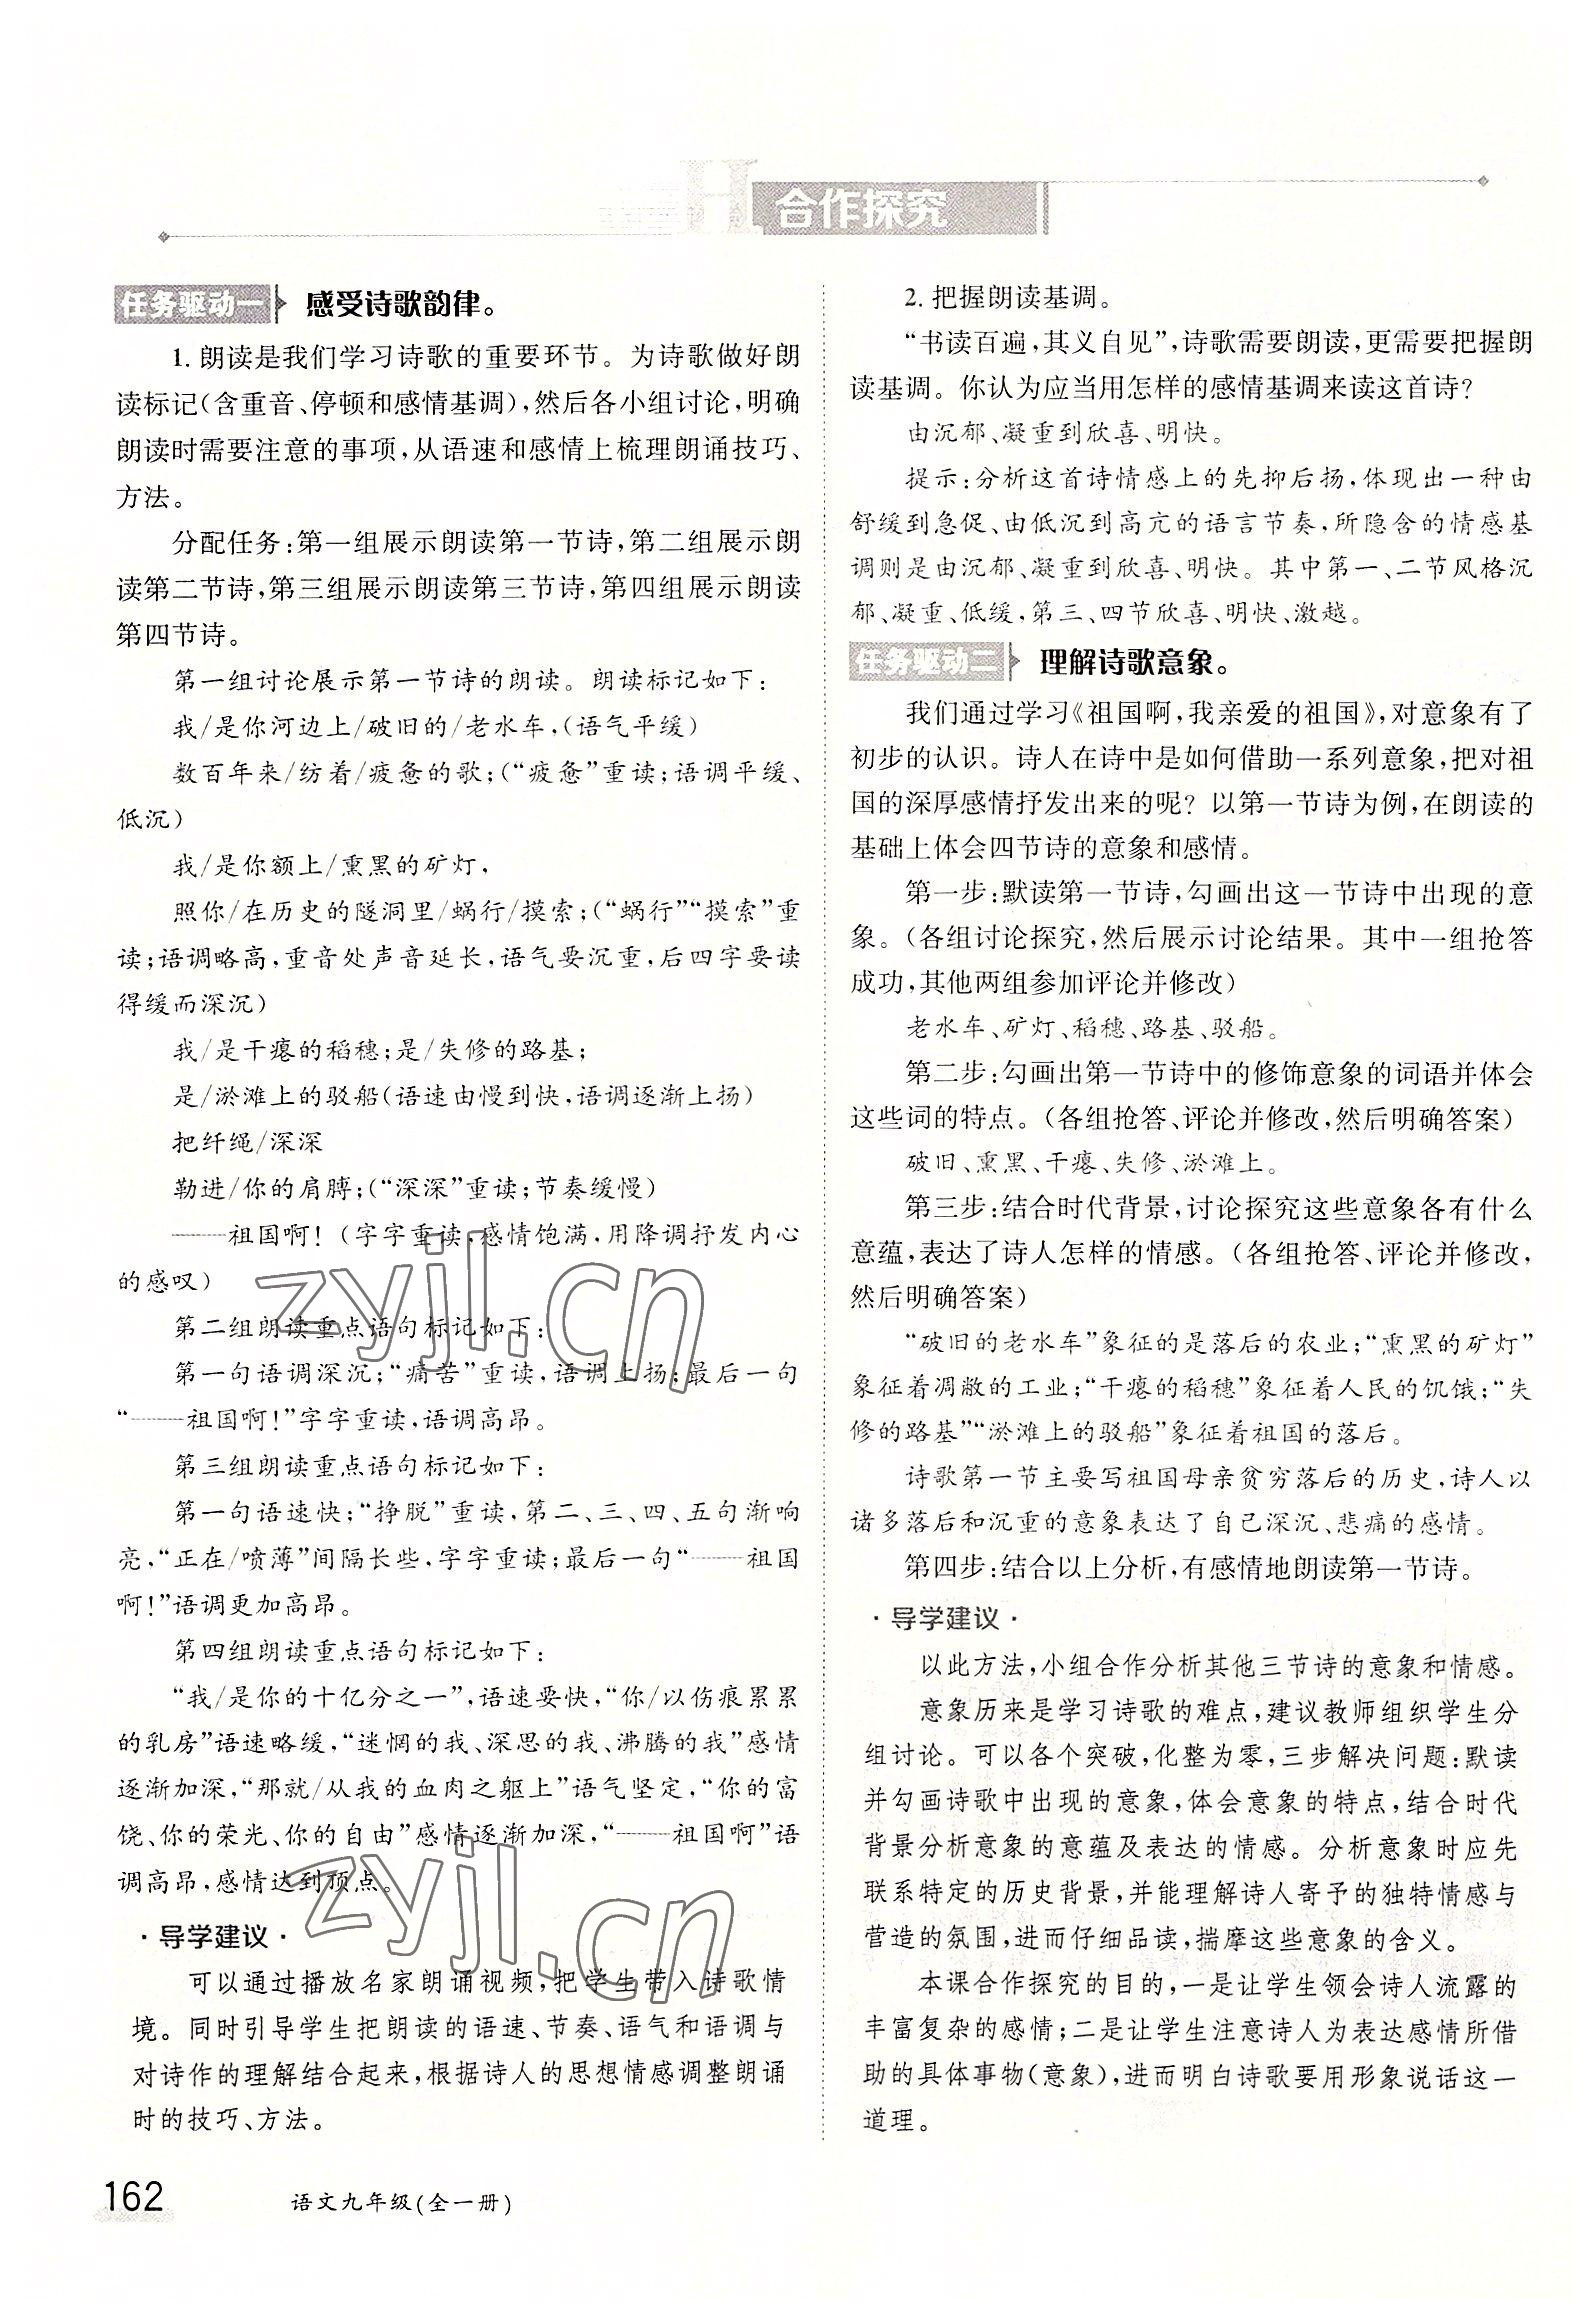 合作探究
任务驱动一 感受诗歌韵律。
1. 朗读是我们学习诗歌的重要环节。为诗歌做好朗
读标记(含重音、停顿和感情基调),然后各小组讨论,明确
朗读时需要注意的事项,从语速和感情上梳理朗诵技巧、
方法。
分配任务:第一组展示朗读第一节诗,第二组展示朗
读第二节诗,第三组展示朗读第三节诗,第四组展示朗读
第四节诗。
第一组讨论展示第一节诗的朗读。朗读标记如下:
我/是你河边上/破旧的/老水车,(语气平缓)
数百年来/纺着/疲惫的歌;(“疲惫”重读;语调平缓、
低沉)
我/是你额上/熏黑的矿灯,
照你/在历史的隧洞里/蜗行/摸索;(“蜗行”“摸索”重
读;语调略高,重音处声音延长,语气要沉重,后四字要读
得缓而深沉)
我/是干瘪的稻穗;是/失修的路基;
是/淤滩上的驳船(语速由慢到快,语调逐渐上扬)
把纤绳/深深
勒进/你的肩膊;(“深深”重读;节奏缓慢)
——祖国啊!(字字重读,感情饱满,用降调抒发内心
的感叹)
第二组朗读重点语句标记如下:
第一句语调深沉;“痛苦”重读,语调上扬;最后一句
“——祖国啊!”字字重读,语调高昂。
第三组朗读重点语句标记如下:
第一句语速快;“挣脱”重读,第二、三、四、五句渐响
亮,“正在/喷薄”间隔长些,字字重读;最后一句“——祖国
啊!”语调更加高昂。
第四组朗读重点语句标记如下:
“我/是你的十亿分之一”,语速要快,“你/以伤痕累累
的乳房”语速略缓,“迷惘的我、深思的我、沸腾的我”感情
逐渐加深,“那就/从我的血肉之躯上”语气坚定,“你的富
饶、你的荣光、你的自由”感情逐渐加深,“——祖国啊”语
调高昂,感情达到顶点。
·导学建议·
可以通过播放名家朗诵视频,把学生带入诗歌情
境。同时引导学生把朗读的语速、节奏、语气和语调与
对诗作的理解结合起来,根据诗人的思想情感调整朗诵
时的技巧、方法。
2. 把握朗读基调。
“书读百遍,其义自见”,诗歌需要朗读,更需要把握朗
读基调。你认为应当用怎样的感情基调来读这首诗?
由沉郁、凝重到欣喜、明快。
提示:分析这首诗情感上的先抑后扬,体现出一种由
舒缓到急促、由低沉到高亢的语言节奏,所隐含的情感基
调则是由沉郁、凝重到欣喜、明快。其中第一、二节风格沉
郁、凝重、低缓,第三、四节欣喜、明快、激越。
任务驱动二 理解诗歌意象。
我们通过学习《祖国啊,我亲爱的祖国》,对意象有了
初步的认识。诗人在诗中是如何借助一系列意象,把对祖
国的深厚感情抒发出来的呢?以第一节诗为例,在朗读的
基础上体会四节诗的意象和感情。
第一步:默读第一节诗,勾画出这一节诗中出现的意
象。(各组讨论探究,然后展示讨论结果。其中一组抢答
成功,其他两组参加评论并修改)
老水车、矿灯、稻穗、路基、驳船。
第二步:勾画出第一节诗中的修饰意象的词语并体会
这些词的特点。(各组抢答、评论并修改,然后明确答案)
破旧、熏黑、干瘪、失修、淤滩上。
第三步:结合时代背景,讨论探究这些意象各有什么
意蕴,表达了诗人怎样的情感。(各组抢答、评论并修改,
然后明确答案)
“破旧的老水车”象征的是落后的农业;“熏黑的矿灯”
象征着凋敝的工业;“干瘪的稻穗”象征着人民的饥饿;“失
修的路基”“淤滩上的驳船”象征着祖国的落后。
诗歌第一节主要写祖国母亲贫穷落后的历史,诗人以
诸多落后和沉重的意象表达了自己深沉、悲痛的感情。
第四步:结合以上分析,有感情地朗读第一节诗。
·导学建议·
以此方法,小组合作分析其他三节诗的意象和情感。
意象历来是学习诗歌的难点,建议教师组织学生分
组讨论。可以各个突破,化整为零,三步解决问题:默读
并勾画诗歌中出现的意象,体会意象的特点,结合时代
背景分析意象的意蕴及表达的情感。分析意象时应先
联系特定的历史背景,并能理解诗人寄予的独特情感与
营造的氛围,进而仔细品读,揣摩这些意象的含义。
本课合作探究的目的,一是让学生领会诗人流露的
丰富复杂的感情;二是让学生注意诗人为表达感情所借
助的具体事物(意象),进而明白诗歌要用形象说话这一
道理。
162 语文九年级(全一册)
zyjl.cn
zyjl.cn